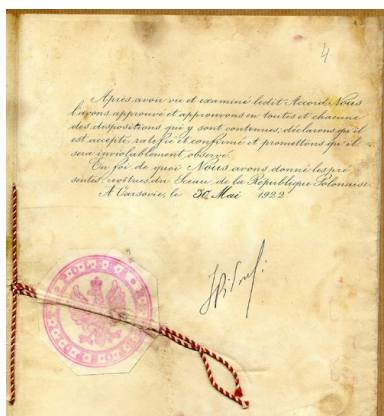 4
Après avoir vu et examiné ledit Accord Nous
l'avons approuvé et approuvons en toutes et chacune
des dispositions qui y sont contenues, déclarons qu'il
est accepté, ratifié et confirmé et promettons qu'il
sera inviolablement observé.
En foi de quoi Nous avons donné les pré
sentes, revêtues du Sceau de la République Polonaise.
A Varsovie, le 30 Mai 1922